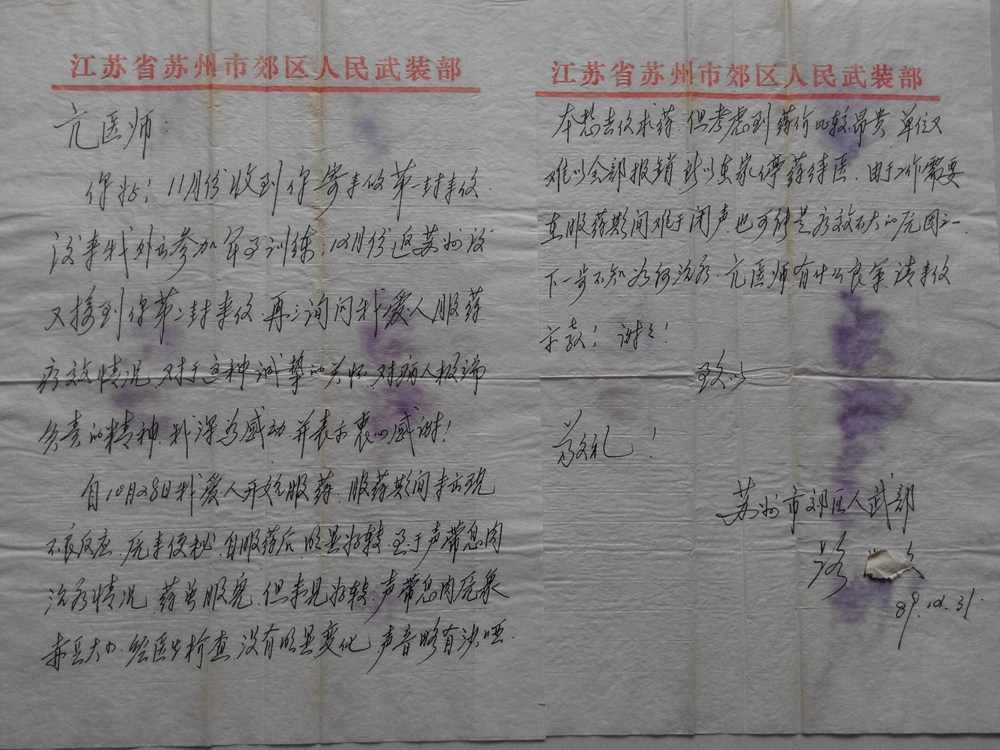 江苏省苏州市郊区人民武装部
亢医师:
你好!11月份收到你寄来的第一封来信
没来我外出参加军事训练,12月份返苏州后
又接到你第二封来信,再三询问我爱人服药
疗效情况,对于这种诚挚的关怀,对病人极端
负责的精神,我深为感动,并表示衷心感谢!
自10月28日我爱人开始服药,服药期间未出现
不良反应,原来便秘,自服药后,明显好转,至于声带息肉
治疗情况,药并服完,但未见好转,声带息肉原象
赤豆大小,经医生检查,没有明显变化,声音略有沙哑.
江苏省苏州市郊区人民武装部
本想去信求药,但考虑到药价比较昂贵,单位又
难以全部报销,所以在家停药待医,由于工作需要
在服药期间难于闭声也可能是疗效不大的原因之一
下一步不知如何治疗,亢医师有什么良策,请来信
示教!谢谢!
致以
敬礼!
苏州市郊区人武部
路
89.12.31.